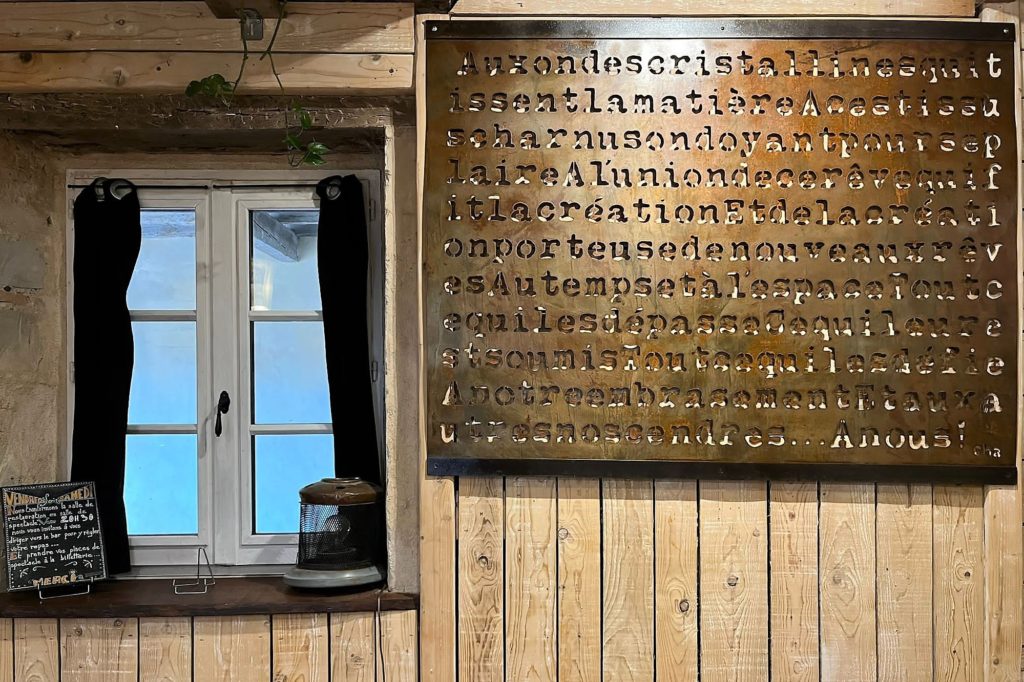 Auxondescristallinesquit
issentlamatièreAcestissu
scharnusondoyantpoursep
laireAl'uniondecerêvequif
itlacréationEtdelacréati
onporteusedenouveauxrêv
esAutempsetàl'espaceToutc
equilesdépasseCequileure
stsoumisToutcequilesdéfie
Anotreembrasement Etauxa
utresnoscendres...Anous!
VENDREDI SAMEDI
20H30
nous vous invitons à vous
diriger vers le bar pour y régler
votre repas...
Et prendre vos places de
spectacle à la billetterie...
MERCI